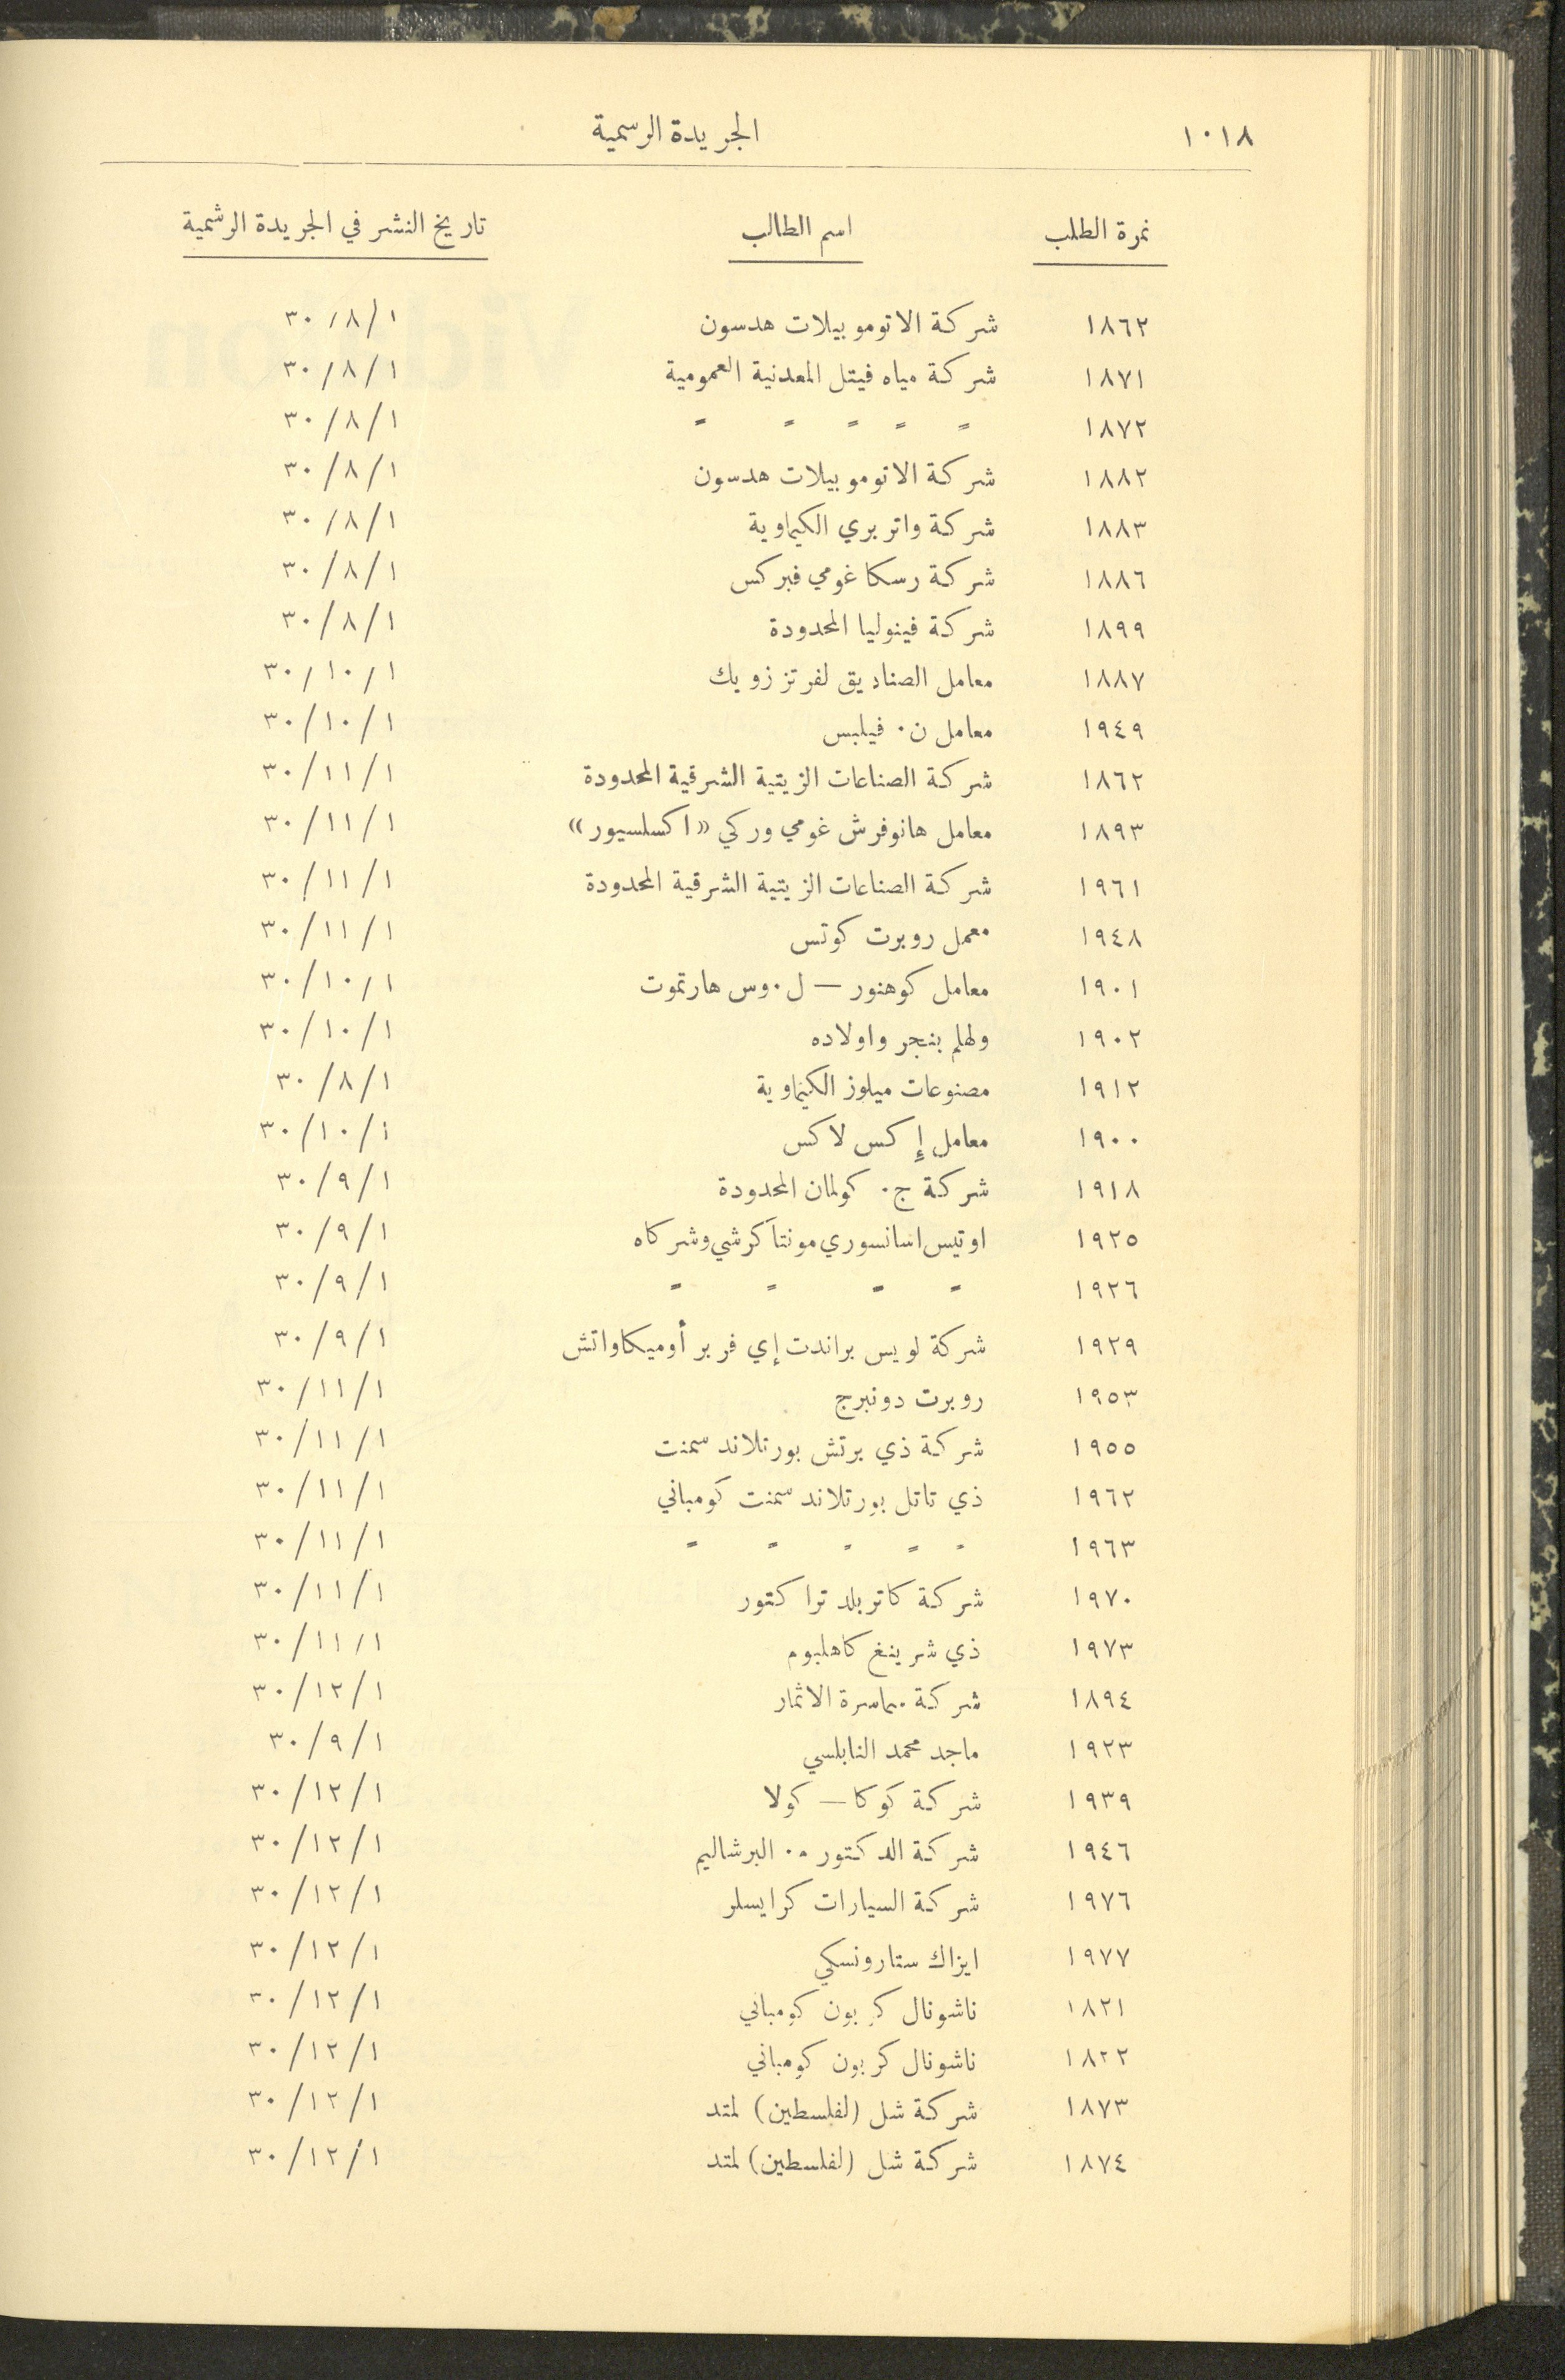 ١٠١٨ الجريدة الرسمية
نمرة الطلب اسم الطالب تاريخ النشر في الجريدة الرسمية
١٨٦٢ شركة الاتوموبيلات هدسون ٣٠/٨/١
١٨٧١ شركة مياه فيتل المعدنية العمومية ٣٠/٨/١
١٨٧٢ = = = = = ٣٠/٨/١
١٨٨٢ شركة الاتوموبيلات هدسون ٣٠/٨/١
١٨٨٣ شركة واتربري الكيماوية ٣٠/٨/١
١٨٨٦ شركة رسكا غومي فبركس ٣٠/٨/١
١٨٩٩ شركة فينوليا المحدودة ٣٠/٨/١
١٨٨٧ معامل الصناديق لفرتز زويك ٣٠/١٠/١
١٩٤٩ معامل ن. فيلبس ٣٠/١٠/١
١٨٦٢ شركة الصناعات الزيتية الشرقية المحدودة ٣٠/١١/١
١٨٩٣ معامل هانوفرش غومي وركي «اكسلسيور» ٣٠/١١/١
١٩٦١ شركة الصناعات الزيتية الشرقية المحدودة ٣٠/١١/١
١٩٤٨ معمل روبرت كوتس ٣٠/١١/١
١٩٠١ معامل كوهنور — ل.وس هارتموت ٣٠/١٠/١
١٩٠٢ ولهلم بنجر واولاده ٣٠/١٠/١
١٩١٢ مصنوعات ميلوز الكيماوية ٣٠/٨/١
١٩٠٠ معامل إكس لاكس ٣٠/١٠/١
١٩١٨ شركة ج. كولمان المحدودة ٣٠/٩/١
١٩٢٥ اوتيس اسانسوري مونتا كرشي وشركاه ٣٠/٩/١
١٩٢٦ = = = = ٣٠/٩/١
١٩٢٩ شركة لويس براندت إي فرير أوميكاواتش ٣٠/٩/١
١٩٥٣ روبرت دونبرج ٣٠/١١/١
١٩٥٥ شركة ذي برتش بورتلاند سمنت ٣٠/١١/١
١٩٦٢ ذي تاتل بورتلاند سمنت كومباني ٣٠/١١/١
١٩٦٣ = = = = = ٣٠/١١/١
١٩٧٠ شركة كاتربلد تراكتور ٣٠/١١/١
١٩٧٣ ذي شرينغ كاهلبوم ٣٠/١١/١
١٨٩٤ شركة سماسرة الاثمار ٣٠/١٢/١
١٩٢٣ ماجد محمد النابلسي ٣٠/٩/١
١٩٣٩ شركة كوكا — كولا ٣٠/١٢/١
١٩٤٦ شركة الدكتور البرشاليم ٣٠/١٢/١
١٩٧٦ شركة السيارات كرايسلر ٣٠/١٢/١
١٩٧٧ ايزاك ستارونسكي ٣٠/١٢/١
١٨٢١ ناشونال كربون كومباني ٣٠/١٢/١
١٨٢٢ ناشونال كربون كومباني ٣٠/١٢/١
١٨٧٣ شركة شل (لفلسطين) لمتد ٣٠/١٢/١
١٨٧٤ شركة شل (لفلسطين) لمتد ٣٠/١٢/١